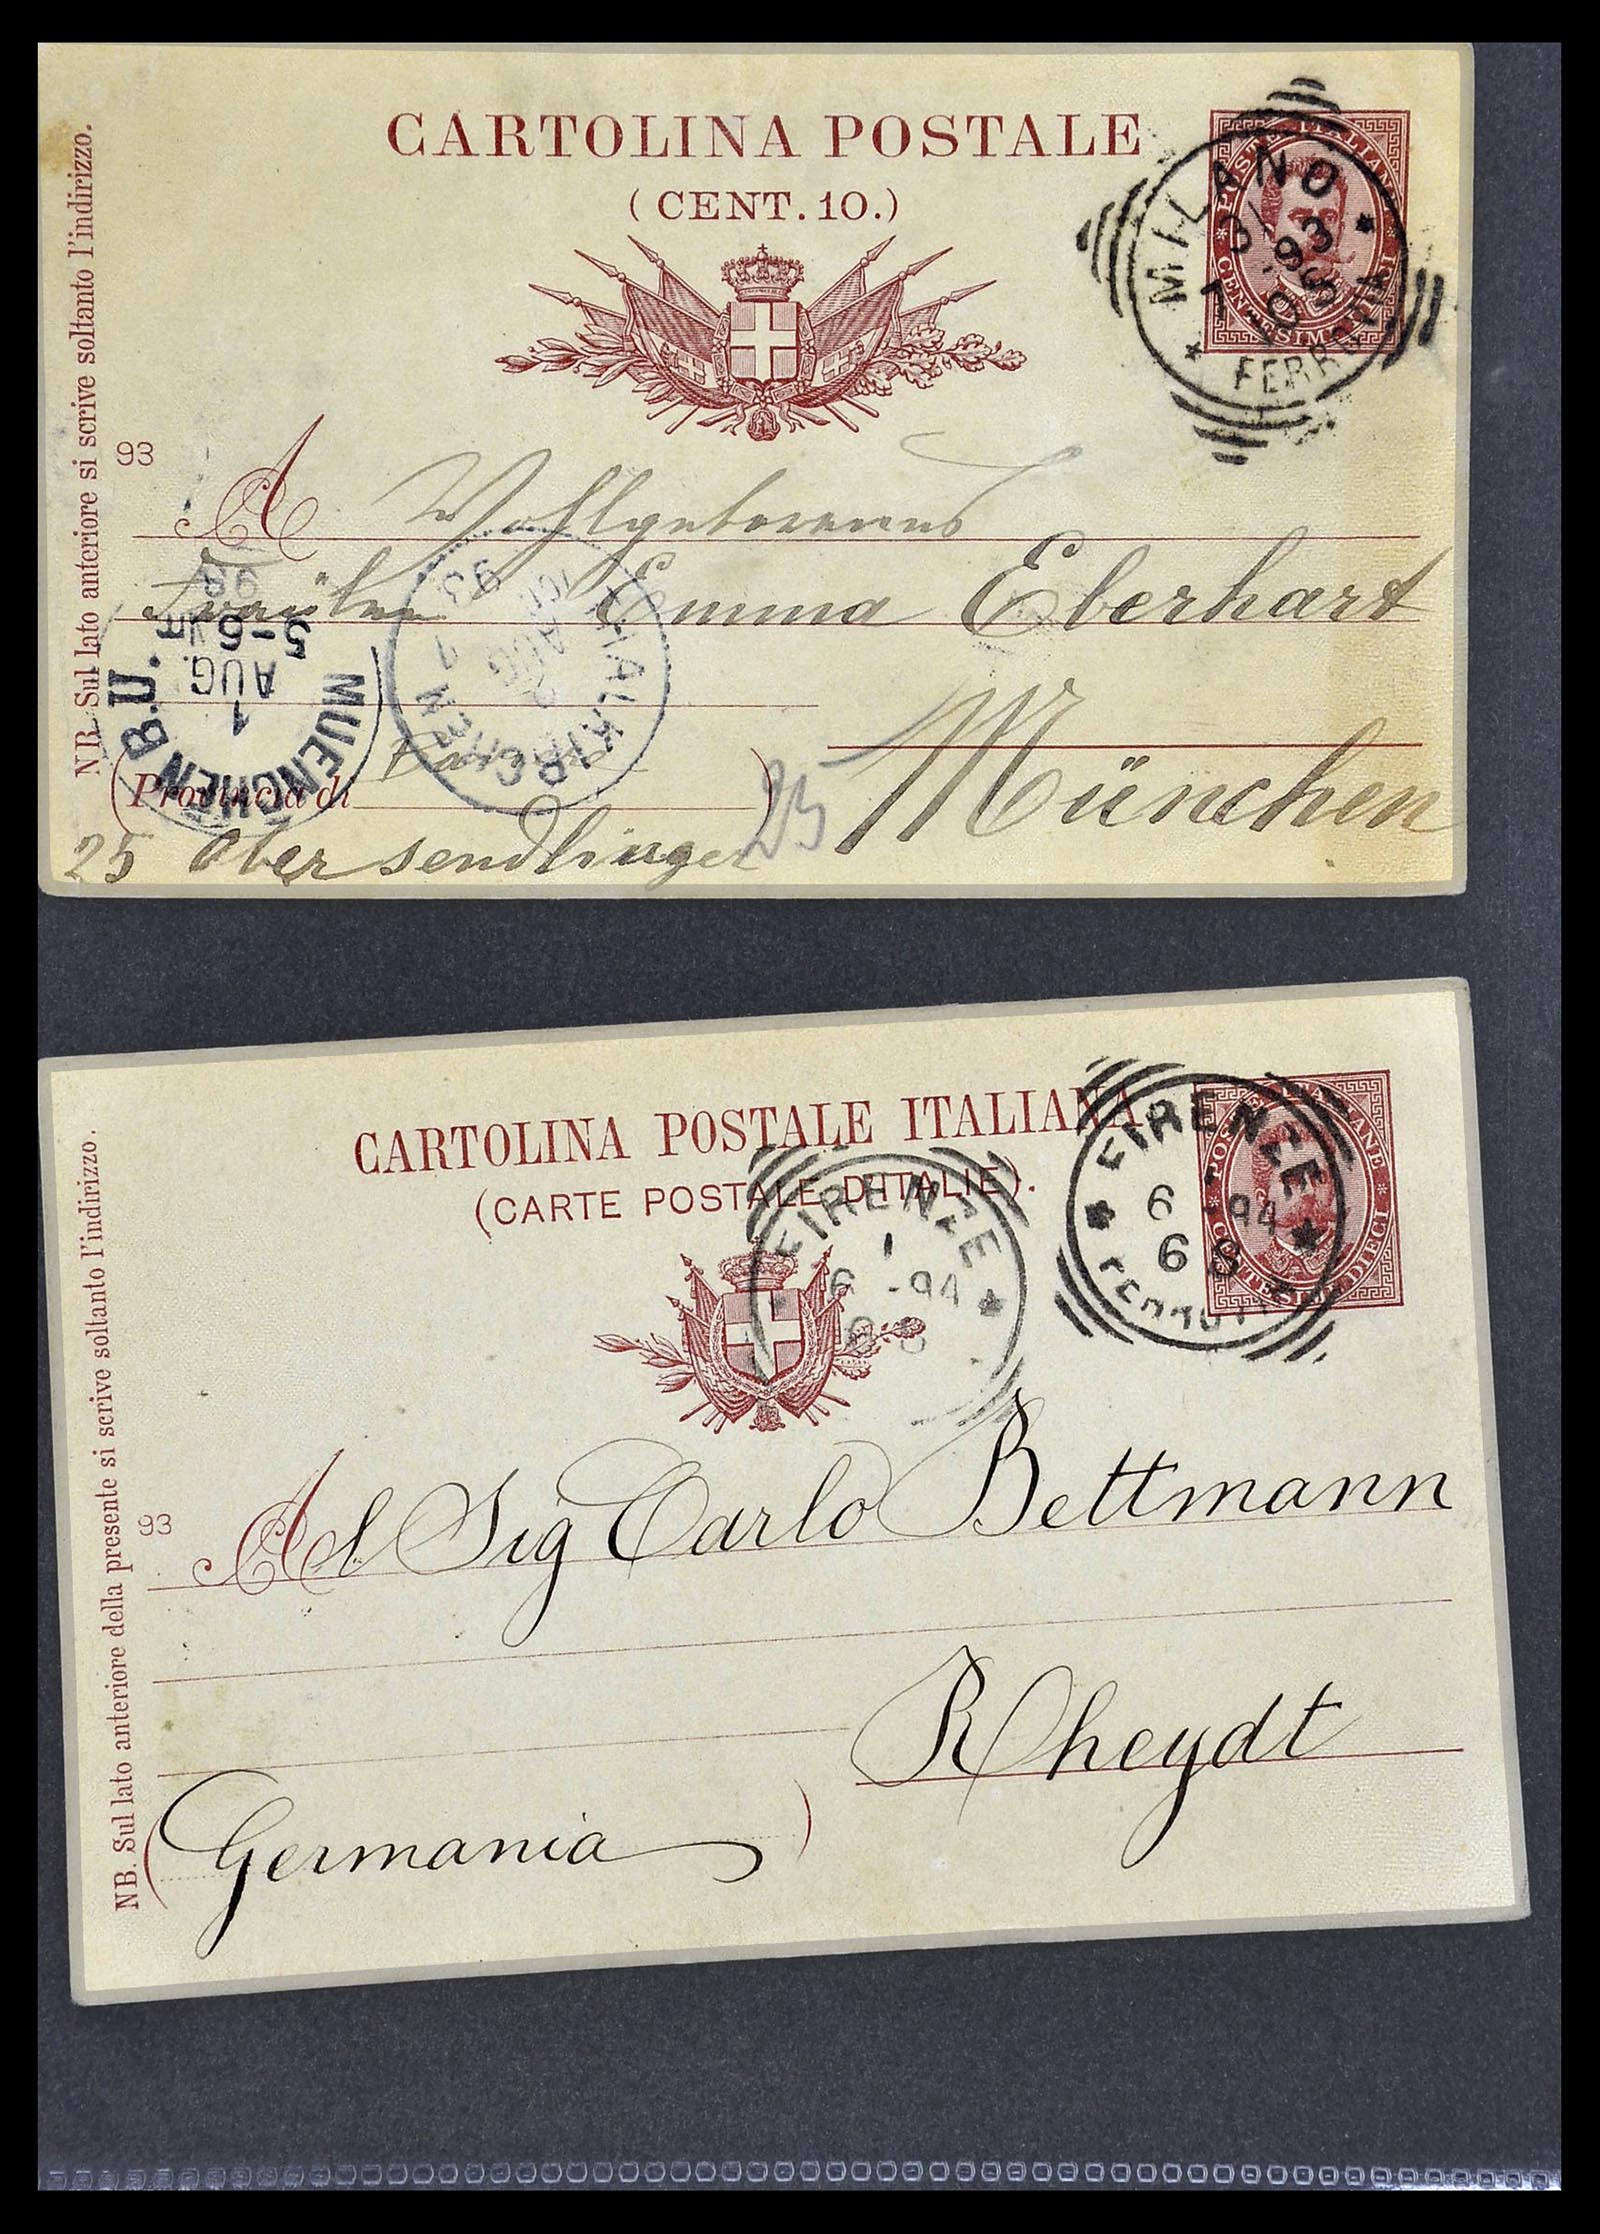 CARTOLINA POSTALE
(CENT. 10.)
NB. Sul lato anteriore si scrive soltanto l'indirizzo.
POSTE ITALIANE
CENTESIMI DIECI
MILANO
FERROVIA
93
A Wohlgeborenes
Fräulein Emma Eberhart
München
(Provincia di
)
25 Ober sendlinger
25
MUENCHEN B.U.
1
AUG.
5-6 NT
THALKIRCHEN
2
AUG
93
CARTOLINA POSTALE ITALIANA
(CARTE POSTALE D'ITALIE).
NB. Sul lato anteriore della presente si scrive soltanto l'indirizzo.
POSTE ITALIANE
CENTESIMI DIECI
FIRENZE
6 -94
6 8
FERROVIA
FIRENZE
6 -94
93
Al Sig Carlo Bettmann
Rheydt
(Germania)